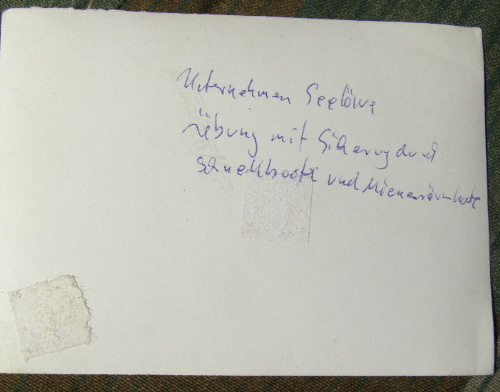 Unternehmen Seelöwe
Übung mit Sicherung durch
Schnellboote und Mienenräumboote